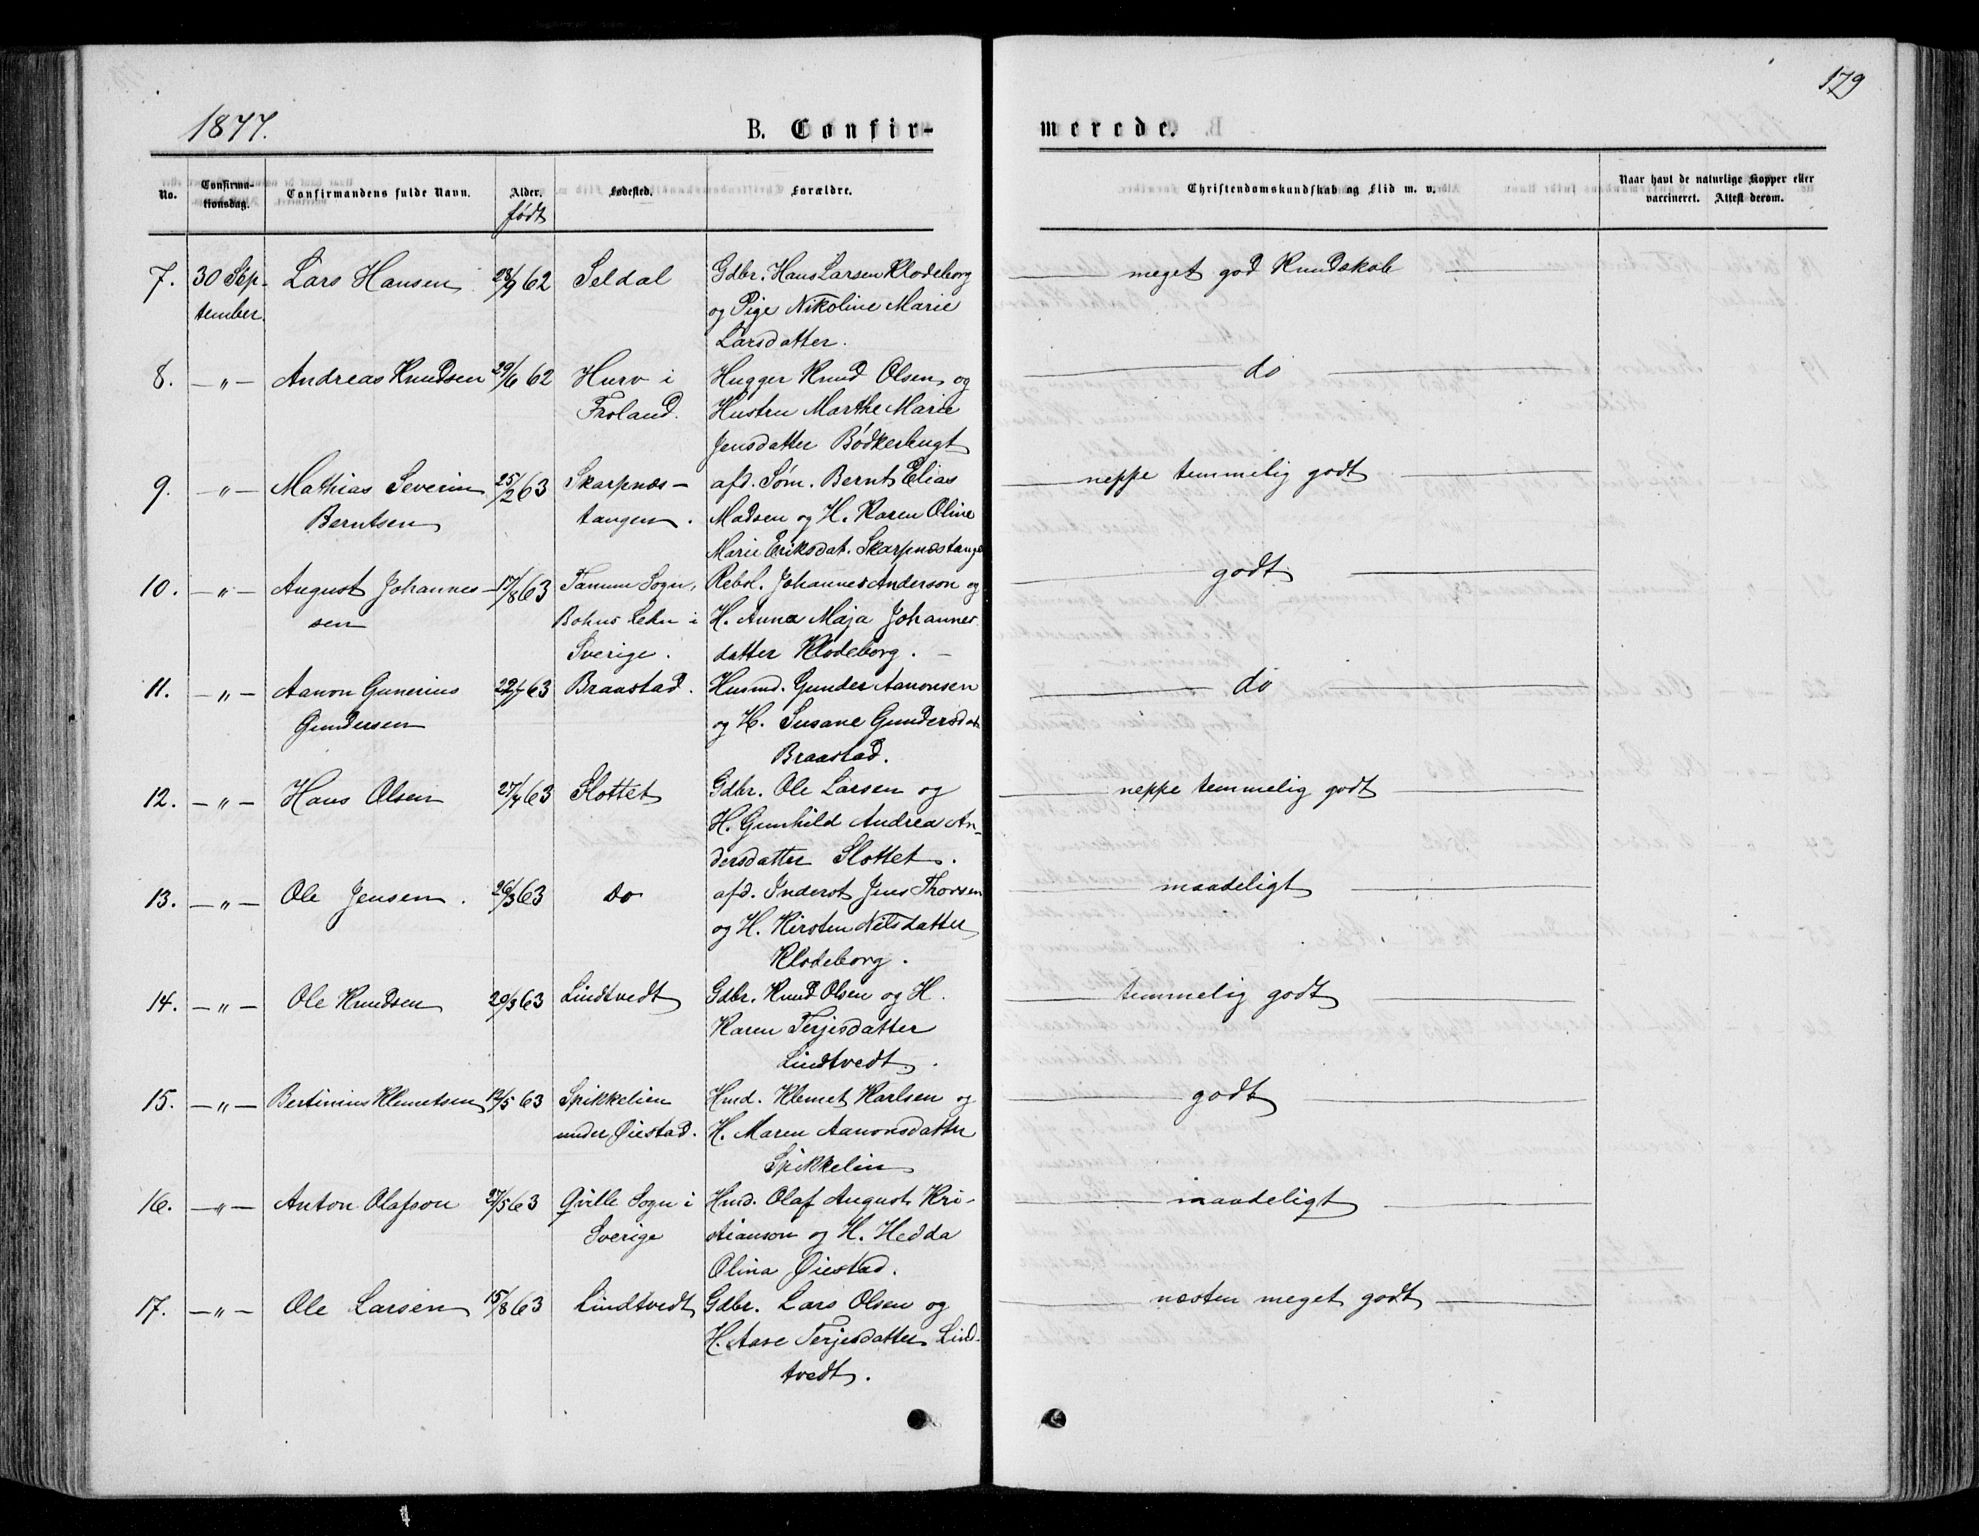 179
1877.
B. Confir-
merede.
No.
Confirma-
tionsdag.
Confirmandens fulde Navn.
Alder.
født
Fødested.
Forældre.
Christendomskundskab og Flid m. v.
Naar havt de naturlige Kopper eller
vaccineret. Attest derom.
7. 30 Sep- Lars Hansen 28/9 62 Seldal Gdbr. Hans Larsen Klodeborg meget god Kundskab
tember. og Pige Nikoline Marie
Larsdatter.
8. — " — Andreas Knudsen 29/6 62 Hurv i Hugger Knud Olsen og do
Froland. Hustru Marthe Marie
Jensdatter Bødkerbugt
9. — " — Mathias Severin 25/2 63 Skarpnæs- afd. Søm. Bernt Elias neppe temmelig godt
Berntsen tangen. Madsen og H. Karen Oline
Marie Eriksdat. Skarpnæstange
10. — " — August Johannes- 17/8 63 Tanum Sogn, Rebsl. Johannes Anderson og godt
sen Bohus Lehn i H. Anna Maja Johannes
Sverige. datter Klodeborg. —
11. — " — Aanon Gunerius 63 Braastad. Husmd. Gunder Aanonsen do
Gundersen og H. Susane Gundersdat
Braastad.
12. — " — Hans Olsen 63 Slottet Gdbr. Ole Larsen og neppe temmelig godt
H. Gunhild Andrea An-
dersdatter Slottet.
13. — " — Ole Jensen. 26/3 63 Do afd. Inderst Jens Thorsen maadeligt
og H. Kirsten Nilsdatter
Klodeborg.
14. — " — Ole Knudsen 63 Lindtvedt Gdbr. Knud Olsen og H. temmelig godt
Karen Terjesdatter
Lindtvedt.
15. — " — Bertinius Klemetsen 12/5 63 Spikkelien Hmd. Klemet Karlsen og godt
under Øiestad. H. Maren Aanonsdatter
Spikkelin
16. — " — Anton Olafson 27/5 63 Qville Sogn i Hmd. Olaf August Kri- maadeligt
Sverige stianson og H. Hedda
Olina Øiestad.
17. — " — Ole Larsen 15/8 63 Lindtvedt Gdbr. Lars Olsen og næsten meget godt
H. Aase Terjesdatter Lind-
tvedt.